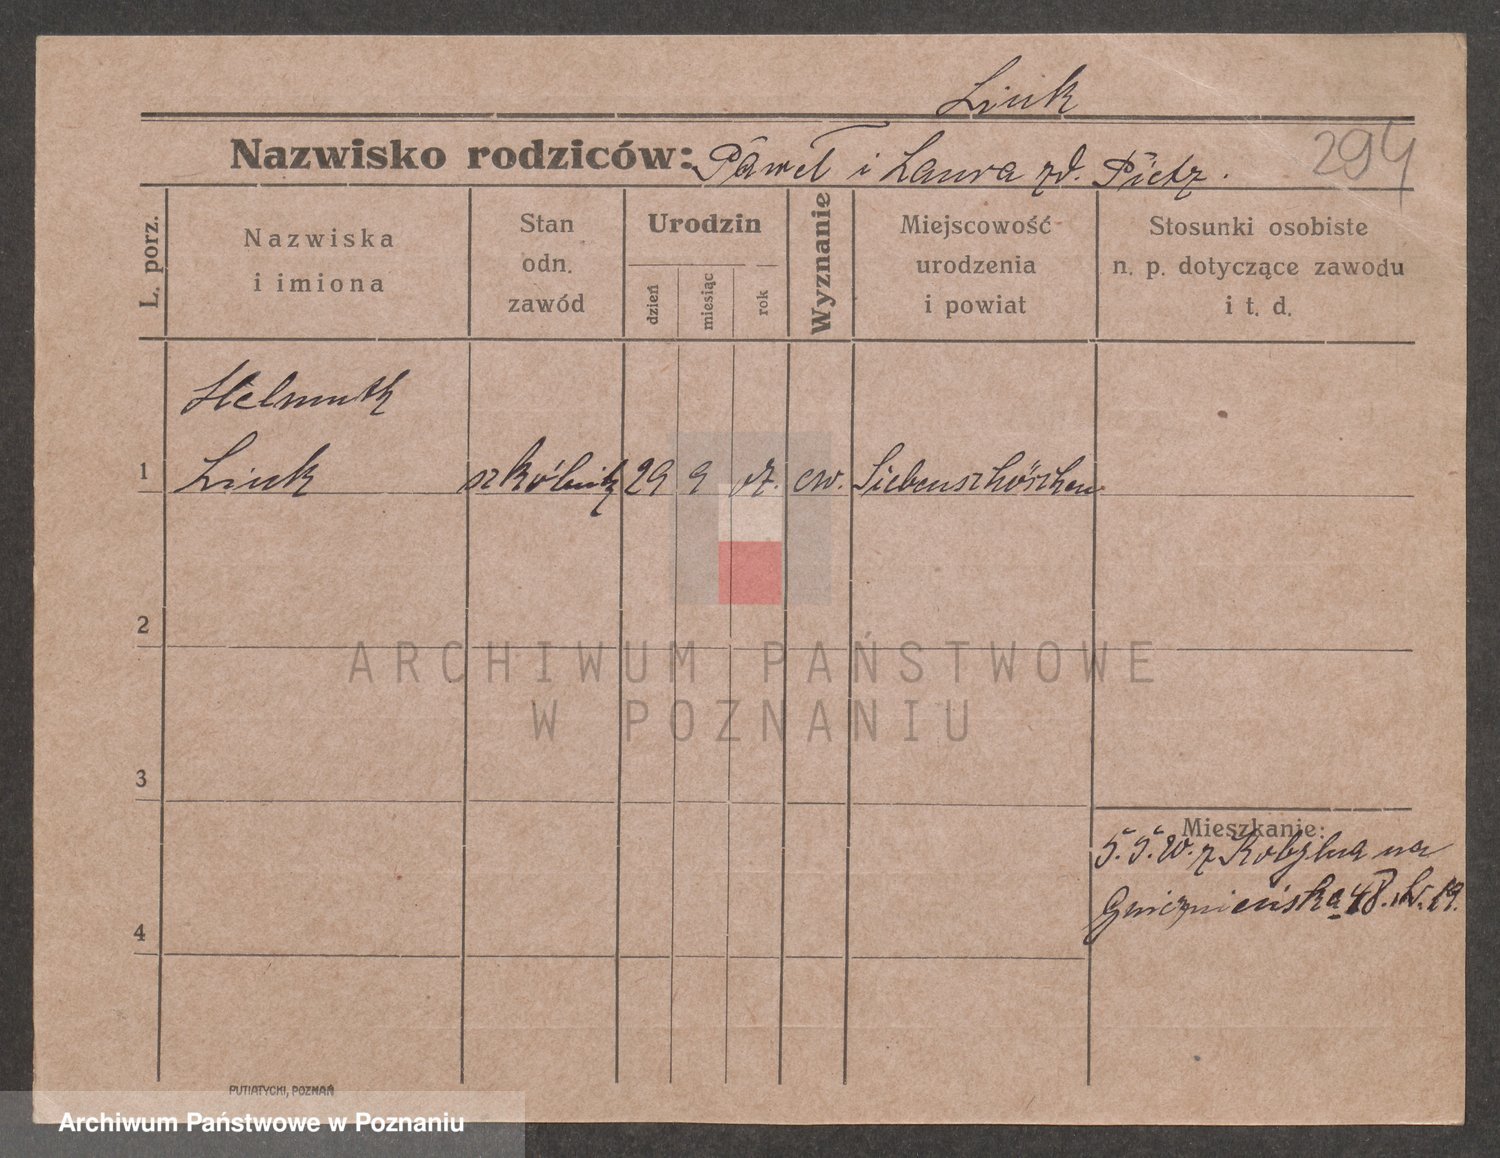 Link
Nazwisko rodziców: Paweł i Laura zd. Pietz. 294
L. porz.
Nazwiska
i imiona
Stan
odn.
zawód
Urodzin
dzień
miesiąc
rok
Wyznanie
Miejscowość
urodzenia
i powiat
Stosunki osobiste
n. p. dotyczące zawodu
i t. d.
Helmuth
1 Link szkólnik 29 9 07. ew.
2
3
4
ARCHIWUM PAŃSTWOWE
W POZNANIU
Mieszkanie:
5.5.20. z na
Gnieźnieńska 48. W. 19.
PUTIATYCKI, POZNAŃ
Archiwum Państwowe w Poznaniu